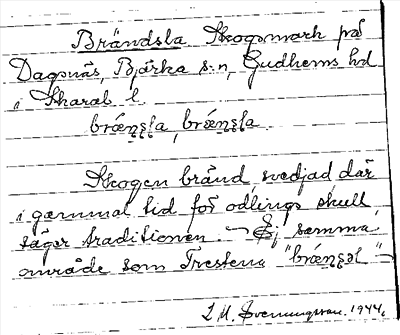 Brändsla Skogsmark på
Dagsnäs, Bjärka s:n, Gudhems hd
i Skarab. l.
brǽnşla, brǽnşla.
Skogen bränd, svedjad där
i gammal tid för odlings skull,
säger traditionen. — Ej samma
område som Trestena "brǽnşəl" —
L M. Svenungsson. 1944.